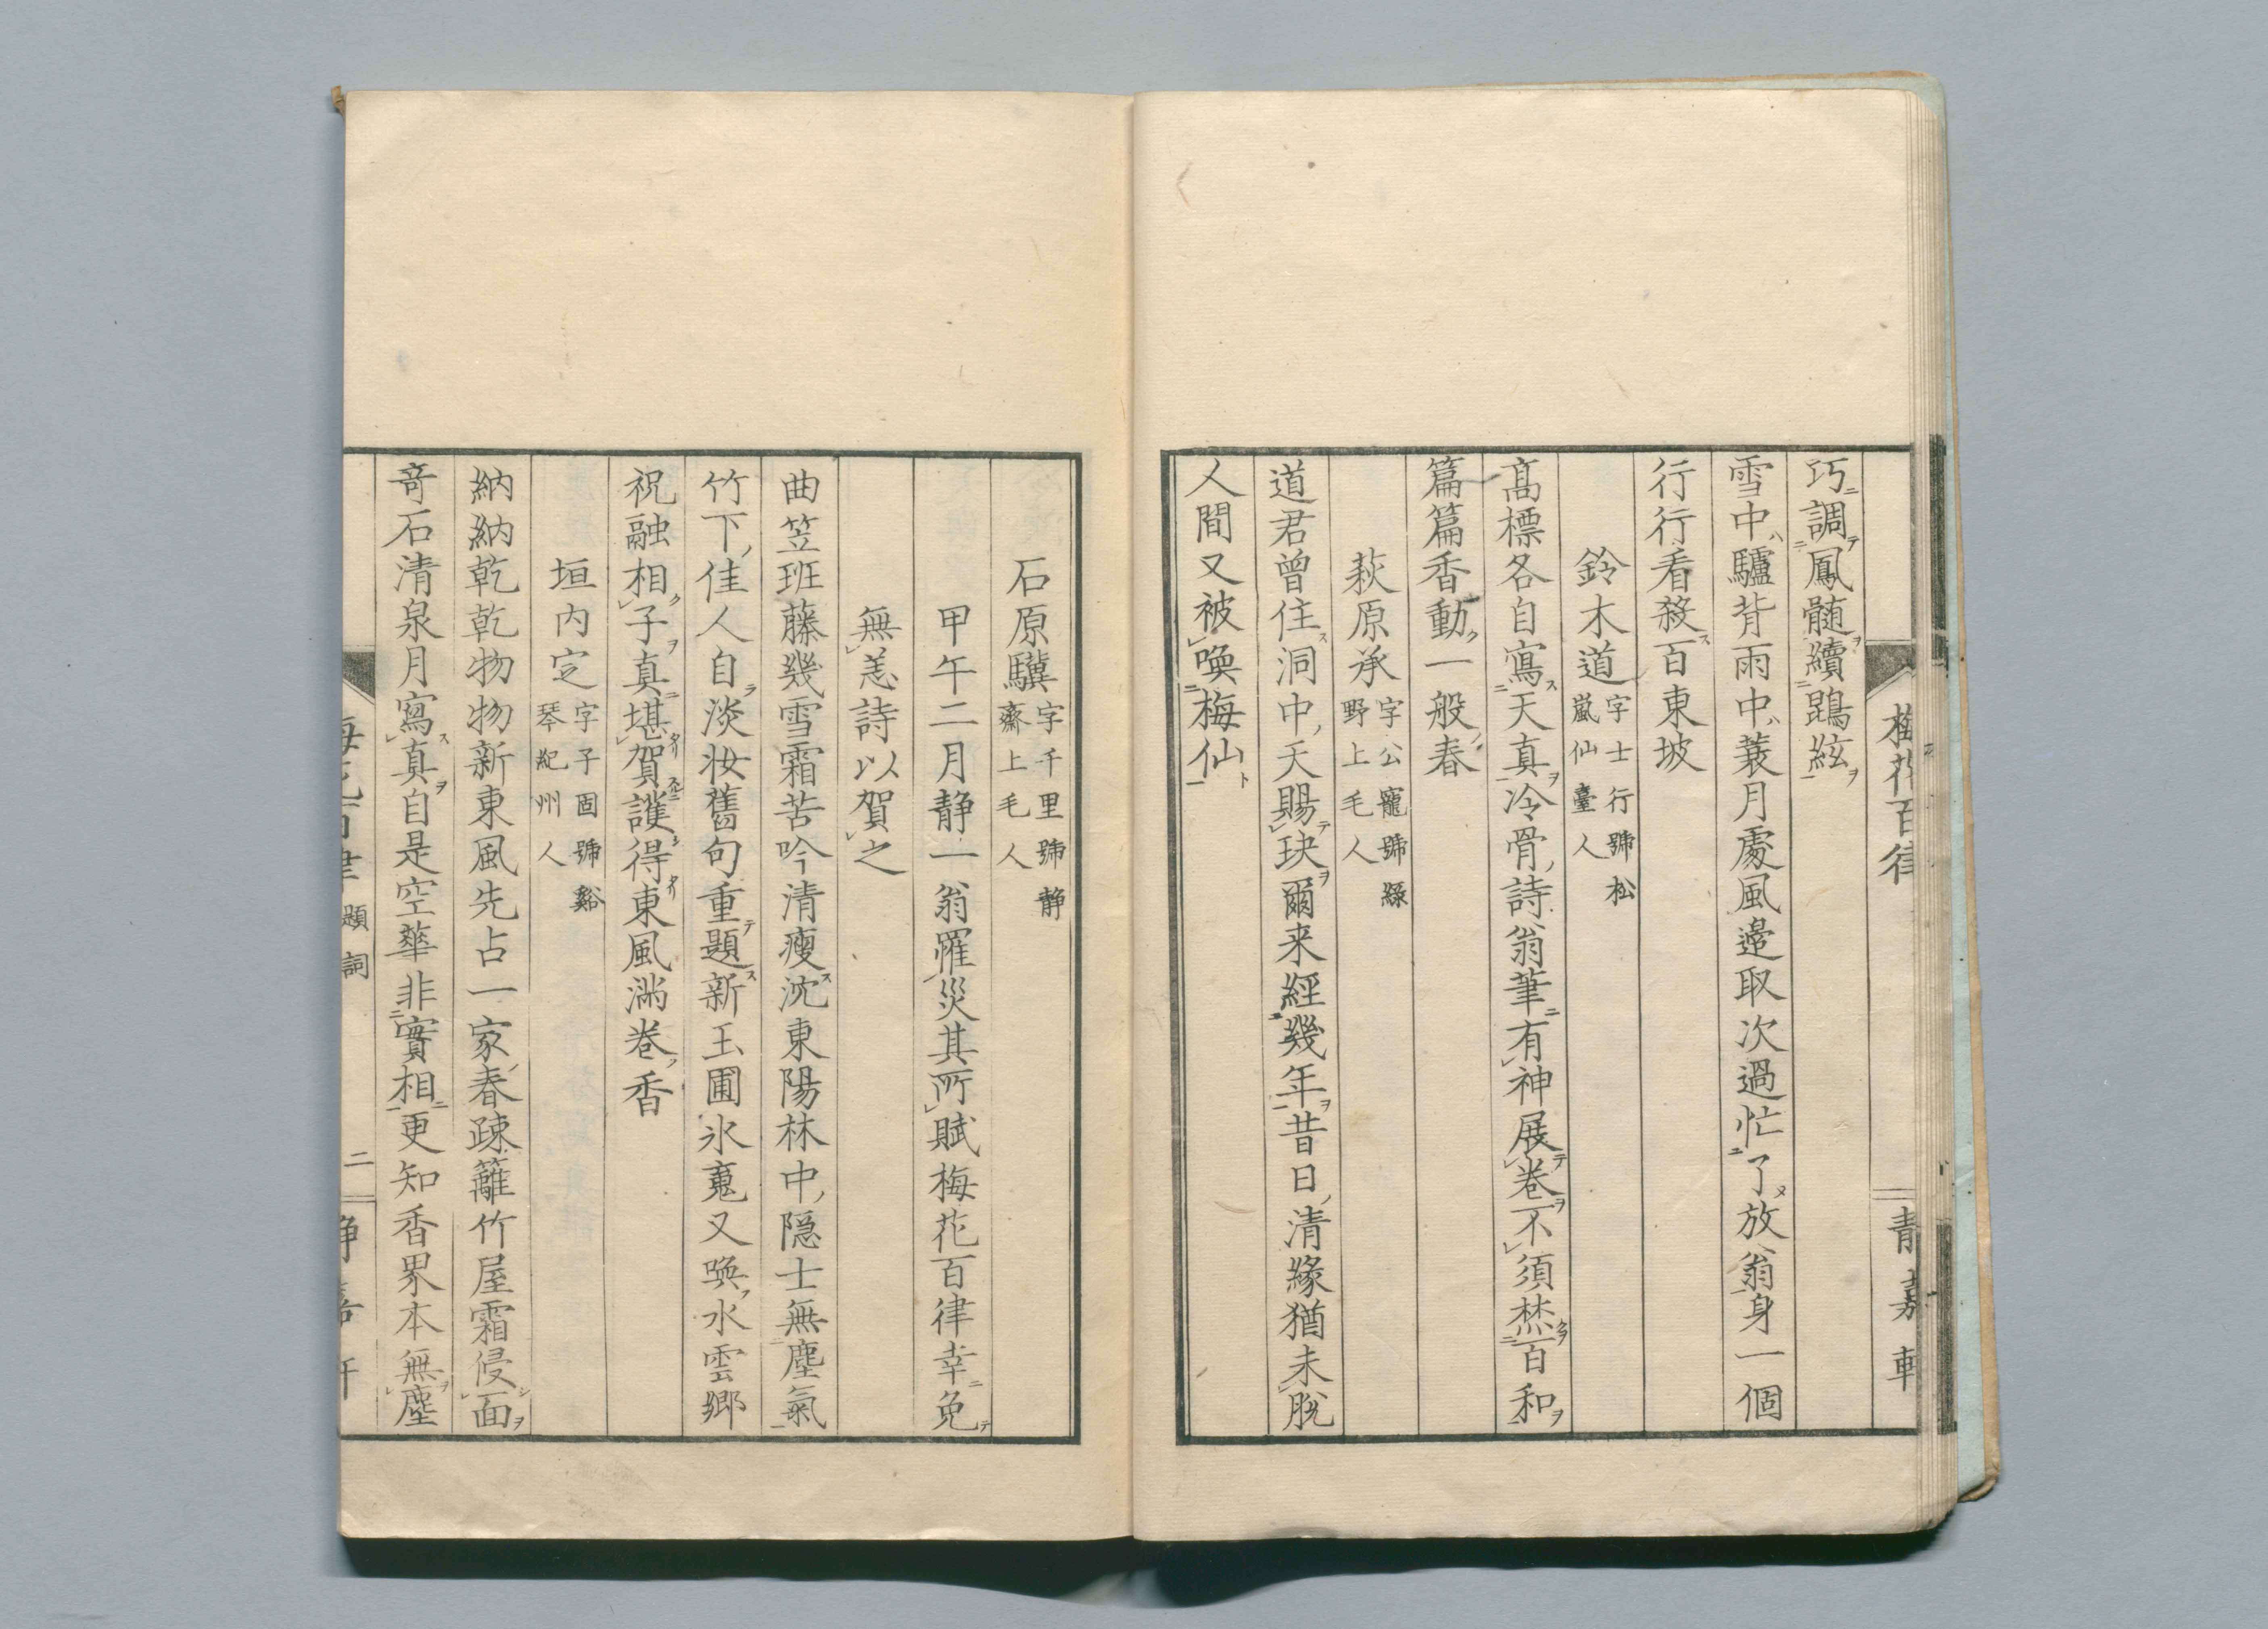 梅花百律
青嘉軒
巧調鳳髄續鵾絃
雪中驢背雨中蓑月處風邊取次過忙了放翁身一個
行行看殺百東坡
鈴木道字士行號松嵐仙臺人
髙標各自寫天真冷骨詩翁筆有神展卷不須焚百和
篇篇香動一般春
萩原承字公寵號綠野上毛人
道君曾住洞中天賜玦爾来經幾年昔日清緣猶未脫
人間又被喚梅仙
石原驥字千里號静齋上毛人
甲午二月静一翁罹災其所賦梅花百律幸免
無恙詩以賀之
曲笠班藤幾雪霜苦吟清瘦沈東陽林中隠士無塵氣
竹下佳人自淡妆舊句重題新玉圃氷䰟又喚水雲鄉
祝融相子真堪賀護得東風滿卷香
垣内㝎字子固號谿琴紀州人
納納乾乾物物新東風先占一家春疎籬竹屋霜侵面
奇石清泉月寫真自是空華非實相更知香界本無塵
題詞
二